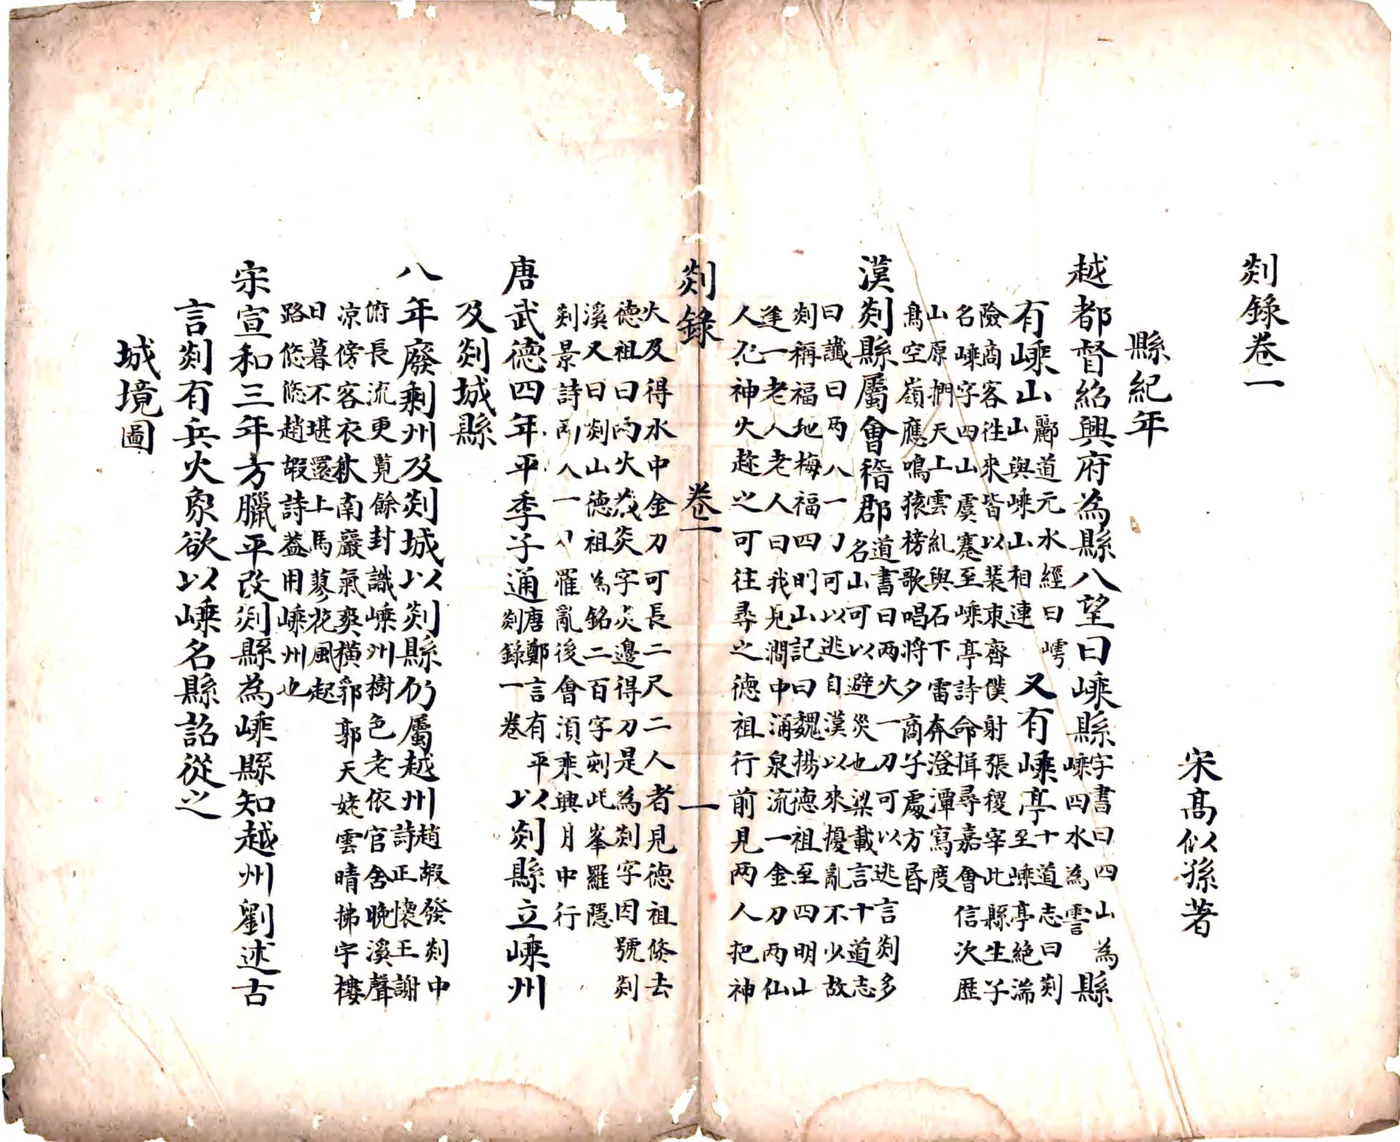 剡錄卷一
宋高似孫著
縣紀年
越都督紹興府為縣八望曰嵊縣字書曰四山為縣
嵊四水為
有嵊山酈道元水經曰嶀
山與嵊山相連又有嵊亭十道志曰剡
至嵊亭絕湍
險商客往來皆以裴束齊僕射張稷宰此縣生子
名嵊字四山虞騫至嵊亭詩命楫尋嘉會信次歷
山原捫天上雲糺與石下雷奔澄潭寫度
鳥空嶺應鳴猿榜歌唱將夕商子處方昏
漢剡縣屬會稽郡道書曰兩火一刀可以逃言剡多
名山可以避災也梁載言十道志
曰讖曰兩八一刀可以逃自漢以來擾亂不少故
剡稱福地梅福四明山記曰魏揚德祖至四明山
逢一老人老人曰我見澗中涌泉流一金刀兩仙
人尤神火趂之可往尋之德祖行前見兩人把神
剡錄
卷一
一
火及得水中金刀可長二尺二人者見德祖倐去
德祖曰兩火茂炎字炎邊得刀是為剡字因號剡
溪又曰剡山德祖為銘二百字剡此峯羅隱
剡景詩兩八一刀罹亂後會須乘興月中行
唐武德四年平季子通唐鄭言有平
剡錄一卷以剡縣立嵊州
及剡城縣
八年廢剩州及剡城以剡縣仍屬越州趙嘏發剡中
詩正懷王謝
俯長流更覧餘封識嵊州樹色老依官舍晚溪聲
涼傍客衣秋南巖氣爽橫郛郭天姥雲晴拂宇樓
日暮不堪還上馬蓼花風起
路悠悠趙嘏詩葢用嵊州也
宋宣和三年方臘平改剡縣為嵊縣知越州劉述古
言剡有兵火象欲以嵊名縣詔從之
城境圖